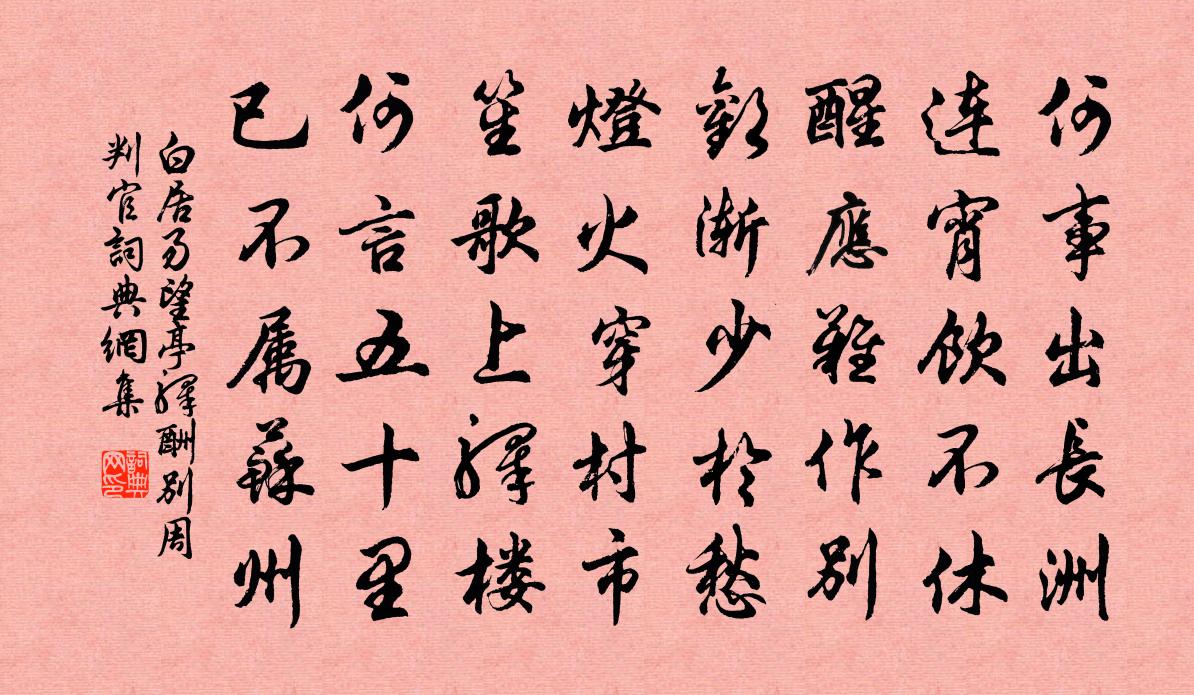 何事出長洲
连宵飲不休
醒應難作别
歡渐少於愁
燈火穿村市
笙歌上驿楼
何言五十里
已不属蘇州
白居易望亭驿酬别周
判官詞典網集
詞典网印